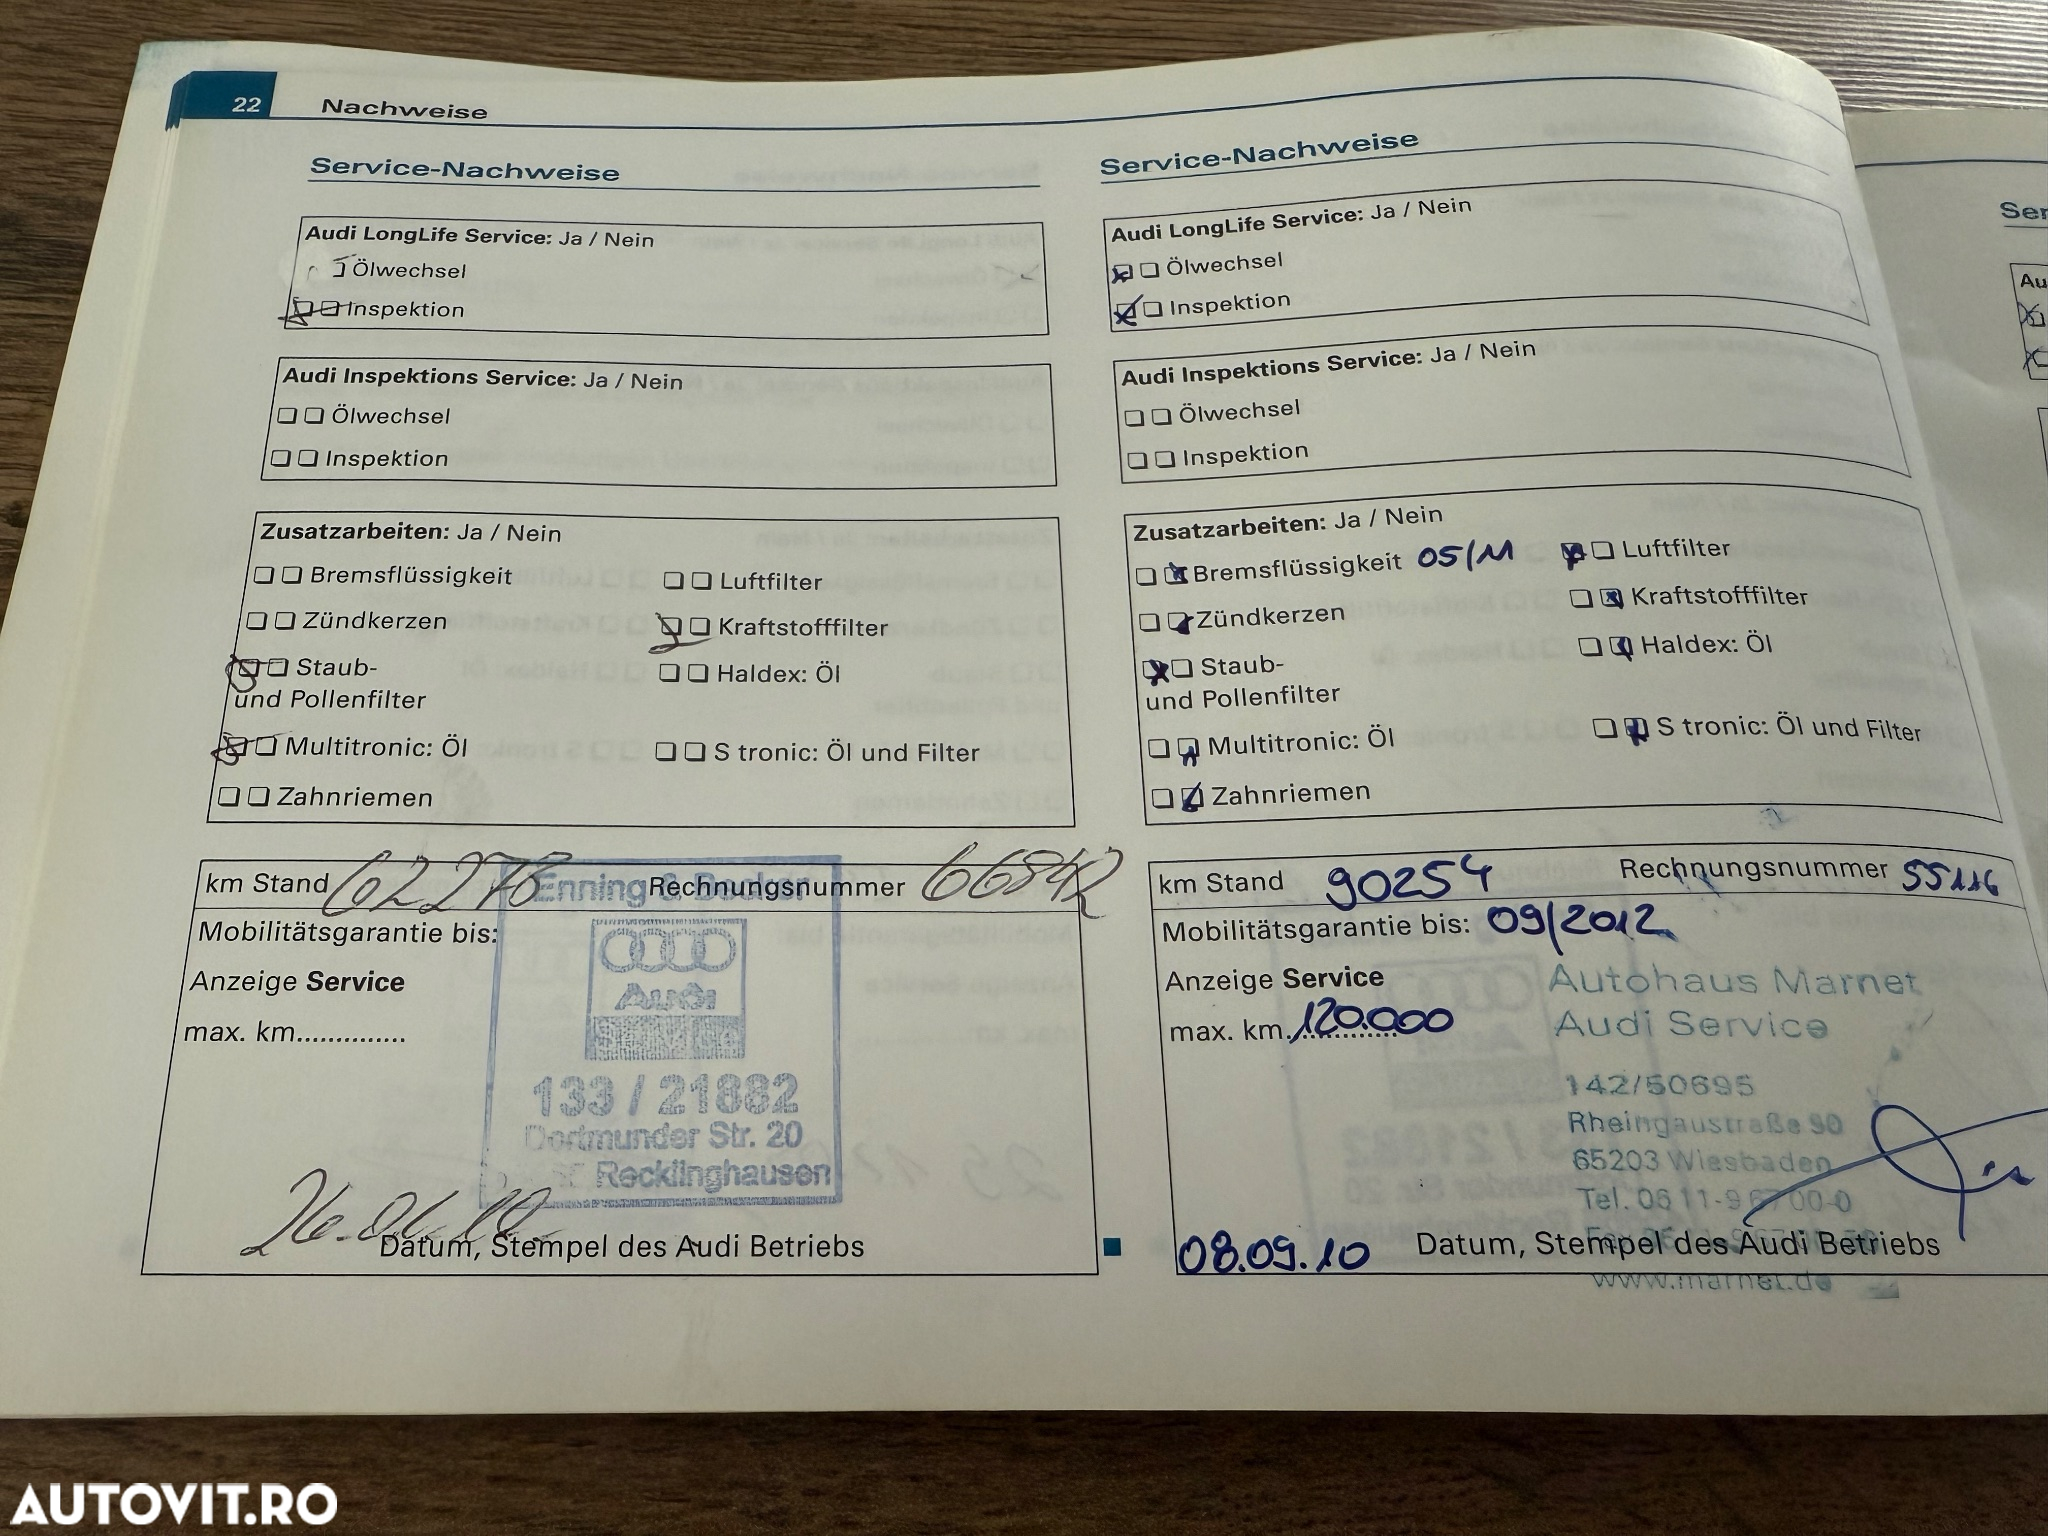 22 Nachweise
Service-Nachweise
Audi LongLife Service: Ja / Nein
Ölwechsel
Inspektion
Audi Inspektions Service: Ja / Nein
Ölwechsel
Inspektion
Zusatzarbeiten: Ja / Nein
Bremsflüssigkeit Luftfilter
Zündkerzen Kraftstofffilter
Staub- Haldex: Öl
und Pollenfilter
Multitronic: Öl S tronic: Öl und Filter
Zahnriemen
km Stand 62273 Rechnungsnummer 66842
Enning & Becker
Mobilitätsgarantie bis:
Anzeige Service
max. km..............
Audi
133 / 21882
Dortmunder Str. 20
Recklinghausen
Datum, Stempel des Audi Betriebs
Service-Nachweise
Audi LongLife Service: Ja / Nein
Ölwechsel
Inspektion
Audi Inspektions Service: Ja / Nein
Ölwechsel
Inspektion
Zusatzarbeiten: Ja / Nein
Bremsflüssigkeit 05/11 Luftfilter
Zündkerzen Kraftstofffilter
Staub- Haldex: Öl
und Pollenfilter
Multitronic: Öl S tronic: Öl und Filter
Zahnriemen
km Stand 90254 Rechnungsnummer 55116
Mobilitätsgarantie bis: 09/2012
Anzeige Service
max. km. 120.000
Autohaus Marnet
Audi Service
142/50695
Rheingaustraße 90
65203 Wiesbaden
Tel. 06 11-9 67 00-0
08.09.10 Datum, Stempel des Audi Betriebs
www.marnet.de
Ser
Au
AUTOVIT.RO